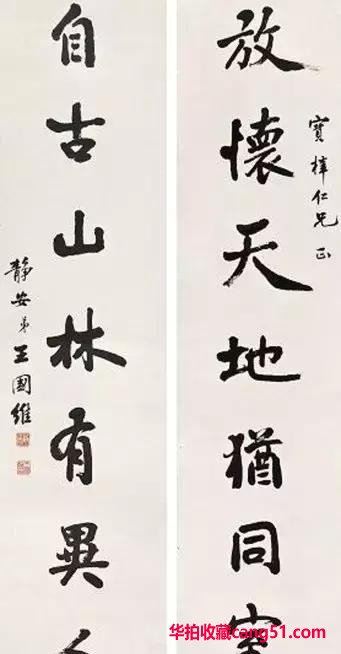 放懷天地猶同
寶梓仁兄 正
自古山林有異
靜安弟王國維
华拍收藏cang51.com